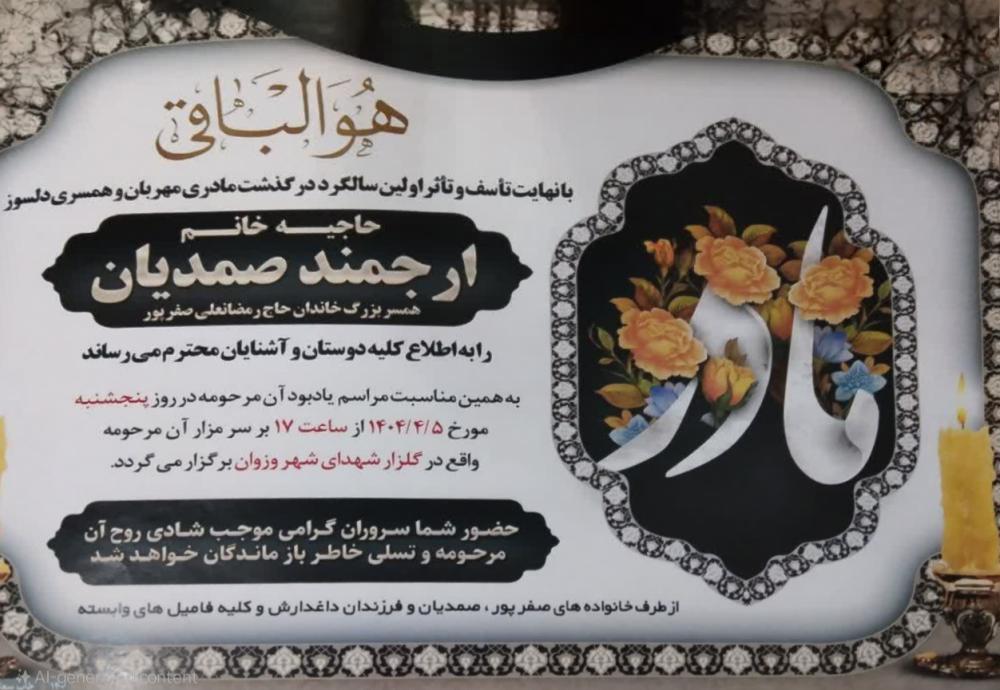 هُوَ الباقی
با نهایت تأسف و تأثر اولین سالگرد درگذشت مادری مهربان و همسری دلسوز
حاجیه خانم
ارجمند صمدیان
همسر بزرگ خاندان حاج رمضانعلی صفرپور
را به اطلاع کلیه دوستان و آشنایان محترم می رساند
به همین مناسبت مراسم یادبود آن مرحومه در روز پنجشنبه
مورخ ۱۴۰۴/۴/۵ از ساعت ۱۷ بر سر مزار آن مرحومه
واقع در گلزار شهدای شهر وزوان برگزار می گردد.
حضور شما سروران گرامی موجب شادی روح آن
مرحومه و تسلی خاطر باز ماندگان خواهد شد
از طرف خانواده های صفر پور ، صمدیان و فرزندان داغدارش و کلیه فامیل های وابسته
مادر
AI-generated content